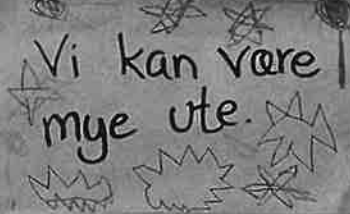 Vi kan være
mye ute.